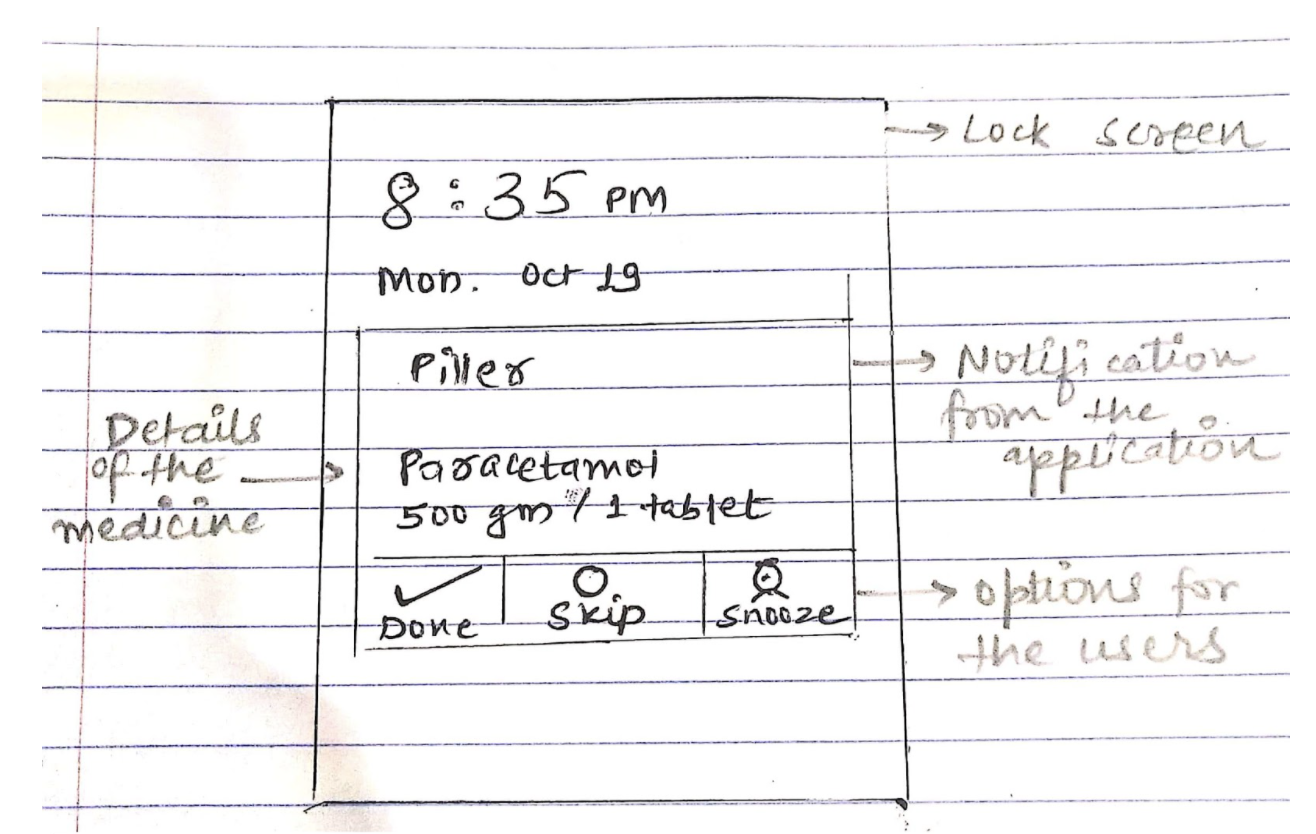 → Lock screen
8:35 PM
Mon. Oct 19
Piller
→ Notification
from the
application
Details
of the →
medicine
Paracetamol
500 gm / 1 tablet
Done
Skip
Snooze
→ options for
the users